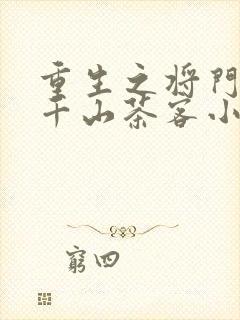 重生之将門
千山茶客小
窮四